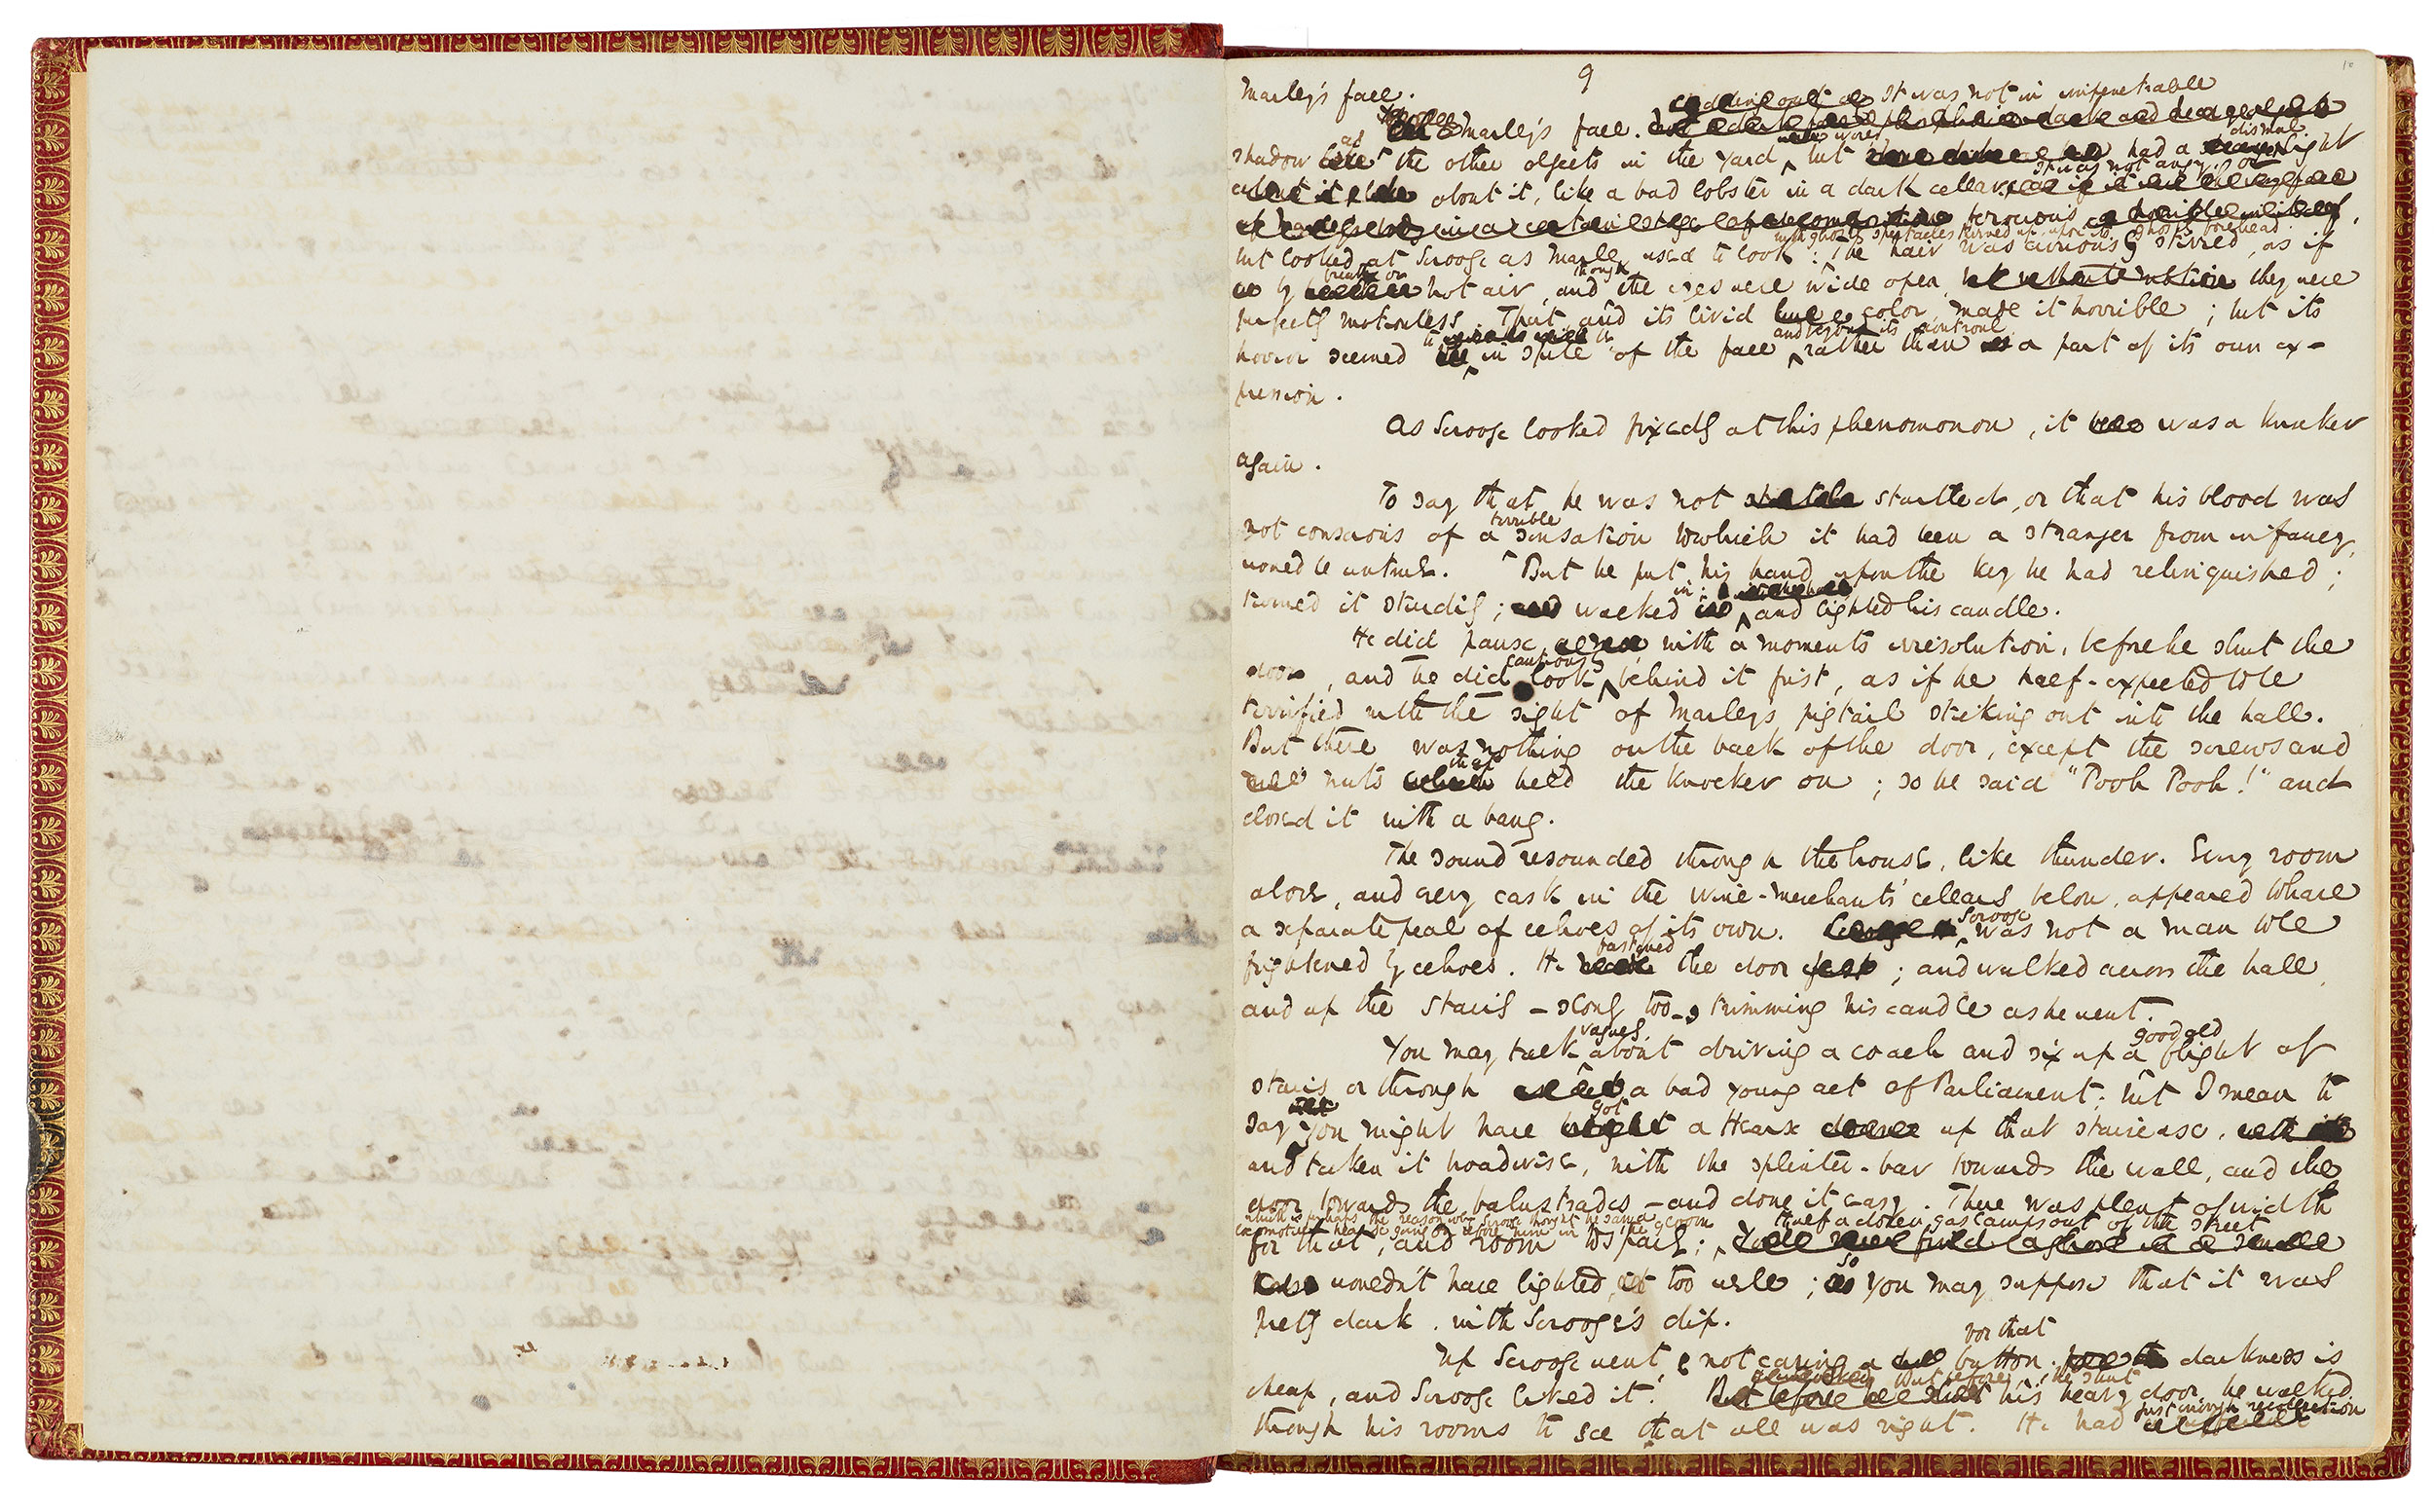 9
Marley's face.
Marley's face. It was not in impenetrable
shadow as the other objects in the yard were, but had a dismal light
about it, like a bad lobster in a dark cellar. It was not angry or
ferocious,
but looked at Scrooge as Marley used to look: with ghostly spectacles turned up upon its ghostly forehead. The hair was curiously stirred, as if
by breath or hot air, and though the eyes were wide open, they were
perfectly motionless. That, and its livid color, made it horrible; but its
horror seemed to be in spite of the face and beyond its controul rather than a part of its own ex-
pression.
As Scrooge looked fixedly at this phenomonon, it was a knocker
again.
To say that he was not startled, or that his blood was
not conscious of a terrible sensation to which it had been a stranger from infancy,
would be untrue. But he put his hand upon the key he had relinquished;
turned it sturdily; walked in; and lighted his candle.
He did pause, with a moments irresolution, before he shut the
door, and he did look cautiously behind it first, as if he half-expected to be
terrified with the sight of Marleys pigtail sticking out into the hall.
But there was nothing on the back of the door, except the screws and
nuts that held the knocker on; so he said "Pooh Pooh!" and
closed it with a bang.
The sound resounded through the house, like thunder. Every room
above, and every cask in the wine-merchants' cellars below, appeared to have
a separate peal of echoes of its own. Scrooge was not a man to be
frightened by echoes. He fastened the door; and walked across the hall,
and up the stairs - slowly too - trimming his candle as he went.
You may talk vaguely about driving a coach and six up a good old flight of
stairs or through a bad young act of Parliament; but I mean to
say you might have got a Hearse up that staircase,
and taken it broadwise, with the splinter-bar towards the wall, and the
door towards the balustrades - and done it easy. There was plenty of width
for that, and room to spare; which is perhaps the reason why Scrooge thought he saw a
locomotive hearse going on before him in the gloom
Half a dozen gas lamps out of the street
wouldn't have lighted it too well; so you may suppose that it was
pretty dark, with Scrooge's dip.
Up Scrooge went, not caring a button for that
darkness is
cheap, and Scrooge liked it. But before he shut his heavy door, he walked
through his rooms to see that all was right. He had just enough recollection